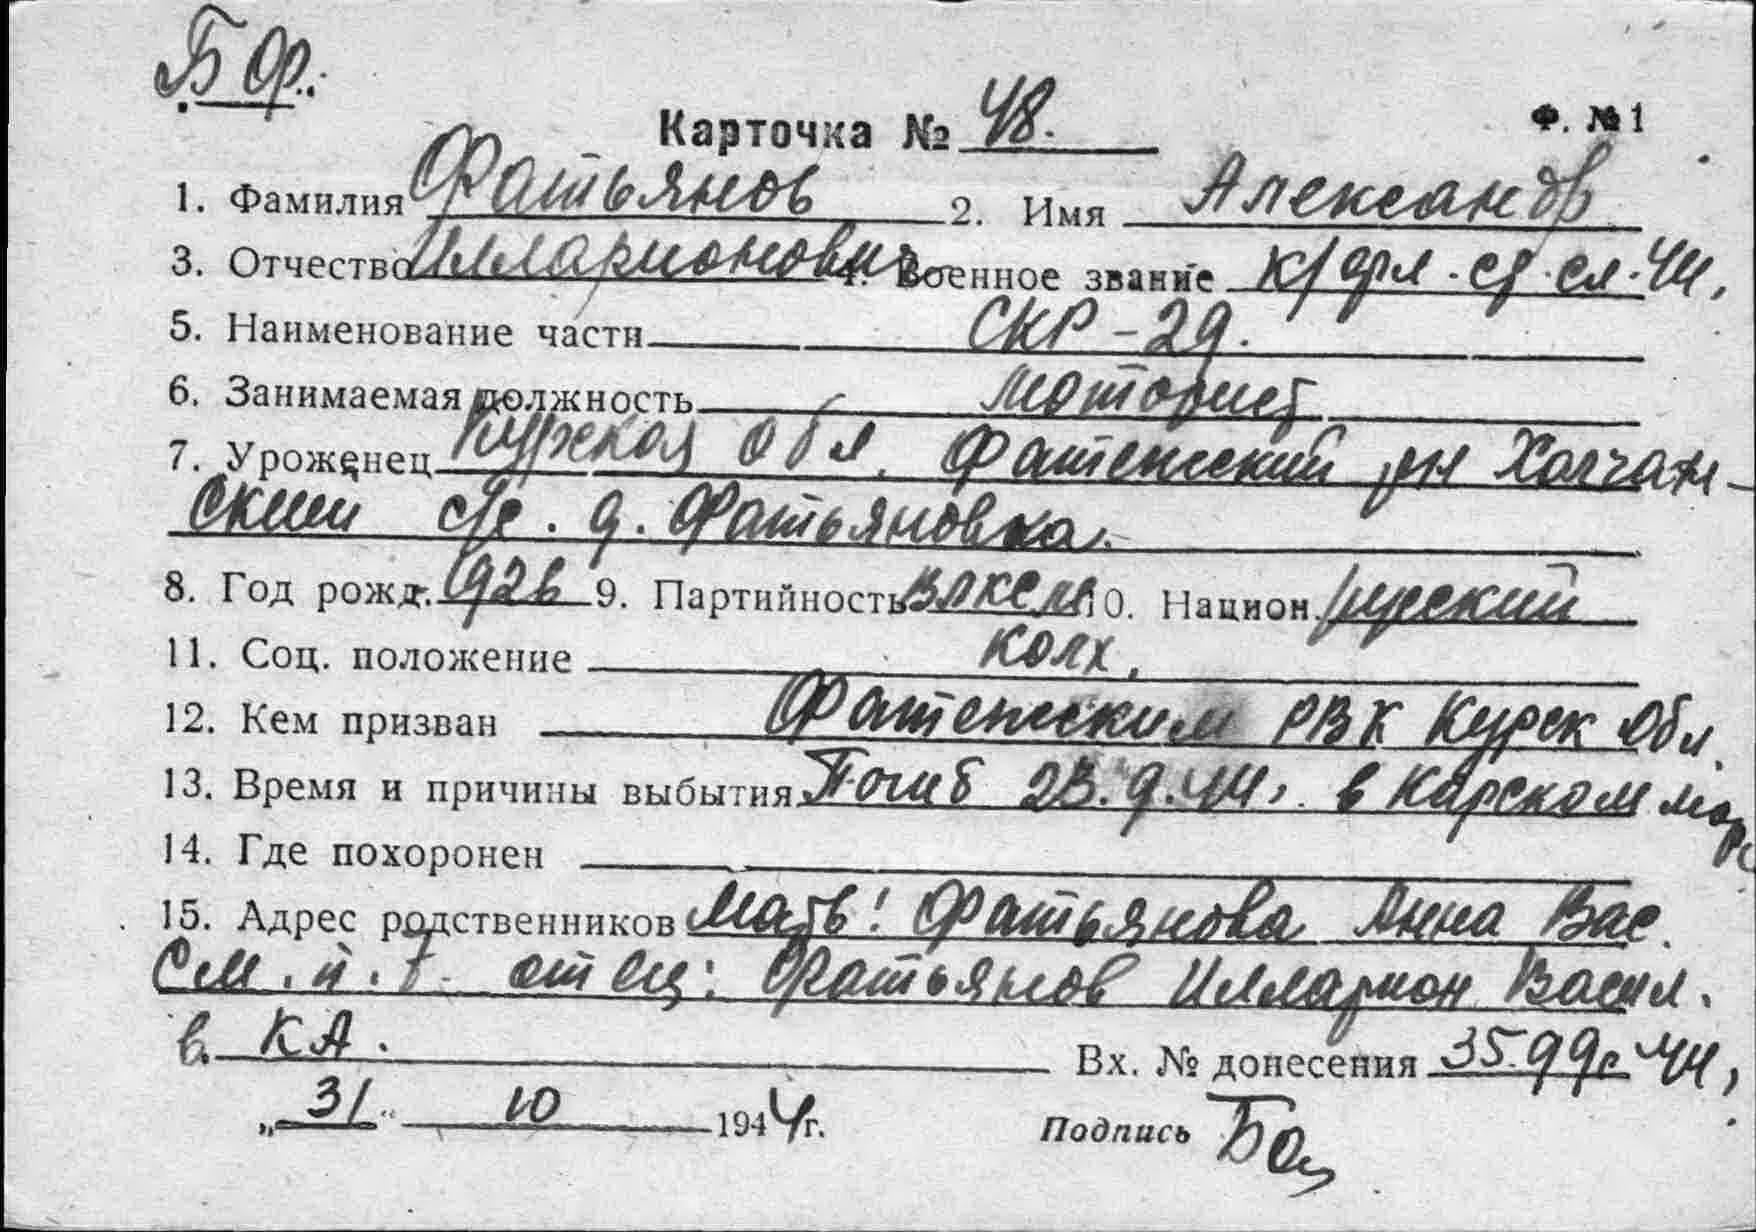 БОф.
Карточка № 48.
Ф. № 1
1. Фамилия Фатьянов 2. Имя Александр
3. Отчество Илларионович 4. Военное звание к/фл. сл. 44,
5. Наименование части СКР-29.
6. Занимаемая должность моторист
7. Уроженец Курская обл. Фатежский рн Холчан-
ский с/с. д. Фатьяновка.
8. Год рожд. 1926 9. Партийность ВЛКСМ 10. Национ. русский
11. Соц. положение колх,
12. Кем призван Фатежским РВК Курск обл.
13. Время и причины выбытия Погиб 23.9.44, в Карском море
14. Где похоронен
15. Адрес родственников Мать: Фатьянова Анна Вас.
См. п. 7. отец: Фатьянов Илларион Васил.
в КА.
Вх. № донесения 3599с 44,
„31" 10 1944г. Подпись